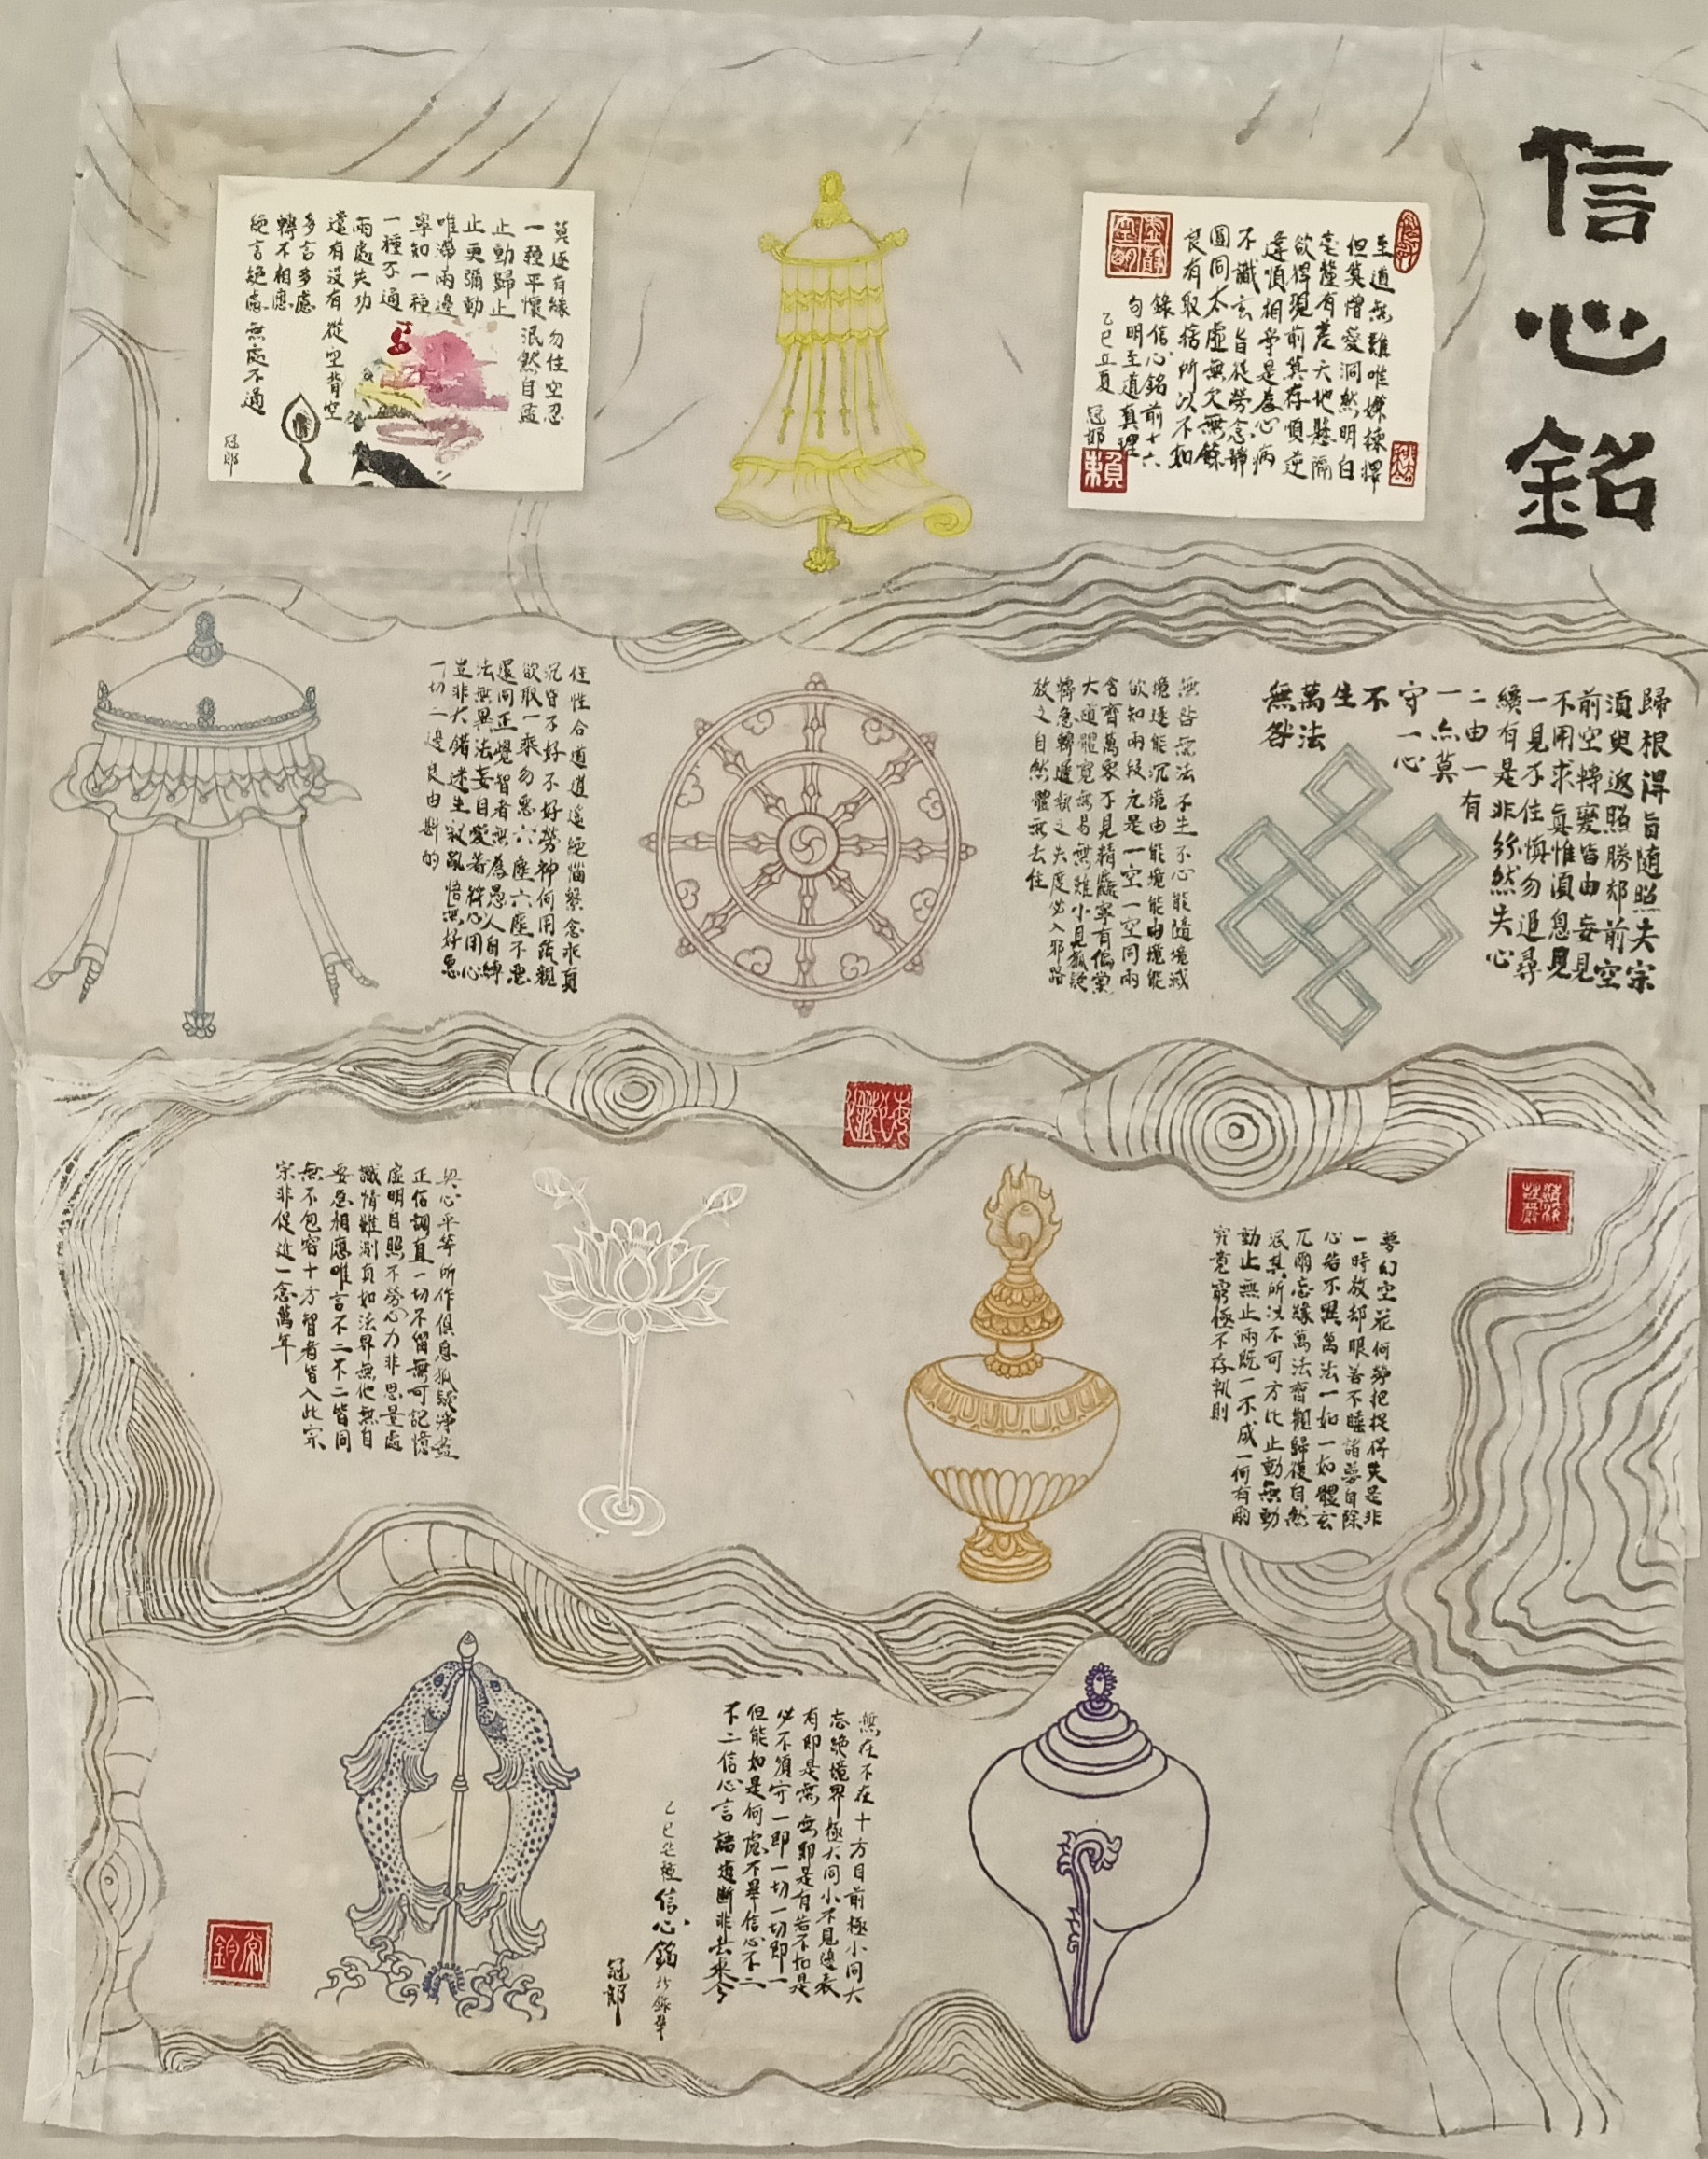 信心銘
至道無難唯嫌揀擇
但莫憎愛洞然明白
毫釐有差天地懸隔
欲得現前莫存順逆
違順相爭是為心病
不識玄旨徒勞念靜
圓同太虛無欠無餘
良有取捨所以不如
錄信心銘前十六
句明至道真理
乙巳立夏 冠郎
賴
莫逐有緣勿住空忍
一種平懷泯然自盡
止動歸止
止更彌動
唯滯兩邊
寧知一種
一種不通
兩處失功
遣有沒有從空背空
多言多慮
轉不相應
絕言絕慮無處不通
冠郎
歸根得旨隨照失宗
須臾返照勝卻前空
前空轉變皆由妄見
不用求真惟須息見
一見不住慎勿追尋
纔有是非紛然失心
二由一有
一亦莫
守一心
不
生
萬法
無咎
無咎無法不生不心能隨境滅
境逐能沉境由能境能由境能
欲知兩段元是一空一空同兩
含齊萬象不見精麤寧有偏黨
大道體寬無易無難小見狐疑
轉急轉遲執之失度必入邪路
放之自然體無去住
任性合道逍遙絕惱繫念乖真
沉昏不好不好勞神何用疏親
欲取一乘勿惡六塵六塵不惡
還同正覺智者無為愚人自縛
法無異法妄自愛著將心用心
豈非大錯迷生寂亂悟無好惡
一切二邊良由斟酌
夢幻空花何勞把捉得失是非
一時放卻眼若不睡諸夢自除
心若不異萬法一如一如體玄
兀爾忘緣萬法齊觀歸復自然
泯其所以不可方比止動無動
動止無止兩既不成一何有爾
究竟窮極不存軌則
契心平等所作俱息狐疑淨盡
正信調直一切不留無可記憶
虛明自照不勞心力非思量處
識情難測真如法界無他無自
要急相應唯言不二不二皆同
無不包容十方智者皆入此宗
宗非促延一念萬年
無在不在十方目前極小同大
忘絕境界極大同小不見邊表
有即是無無即是有若不如是
必不須守一即一切一切即一
但能如是何慮不畢信心不二
不二信心言語道斷非去來今
乙巳芒種信心銘抄錄畢
冠郎